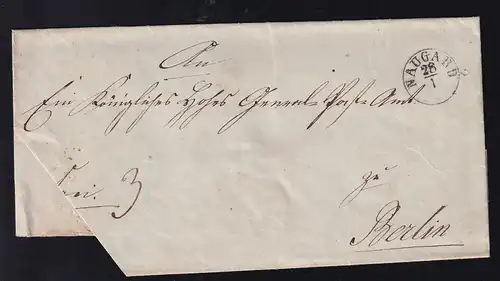 An
NAUGARD
28/1
Ein Königliches Hohes General-Post-Amt
frei. 3
zu
Berlin